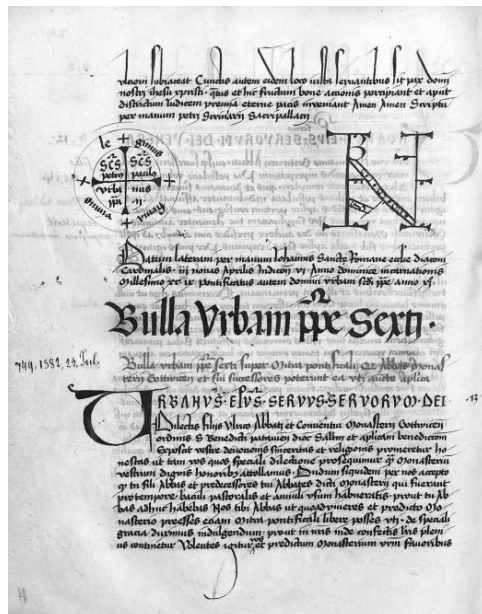 ulcioni subiaceat Cunctis autem eidem loco iusta servantibus sit pax domi
nostri ihesu xpristi · q̃tus et hic fructum bone actionis percipiant et aput
districtum Iudicem premia eterne pacis inveniant Amen Amen Scriptu
per manum petri Scriniarii Sacri pallacii
le gimus
Sc̃s petrus Sc̃s paulus
urba nus
pp̃ ii
Datum laterani per manum Iohannis Sancte Romane ecclie diaconi
Cardinalis · iii nonas Aprilis Indicõn vi Anno dominice incarnationis
Millesimo xc ix pontificatus autem domini urbani scđi pp̃e anno xi
Bulla Urbani pp̃e Sexti ·
749. 1382. 23. Jul.
Bulla urbani pp̃e Sexti super Mitra pontificali Abbates Monas
terii Gottwicen̄ et sui successores poterunt ea uti aucte aplica
URBANVS · EP̃VS · SERVVS · SERVORVM · DEI
Dilectis filiis Ulrico Abbati et Conventui Monasterii Gottwicen̄
ordinis S Benedicti patavien̄ dioc̃ Saltm̃ et aplicam benedictioem
Exposcit vestre devocionis sinceritas et religionis promeretur ho
nestas ut tam vos quos speciali dilectione prosequimur q̃ Monasteriũ
vestrum dignis honoribꝫ attollamus · Dudum siquidem per nos accepto
q̃ tu fili Abbas et predecessores tui Abbates dicti Monasterii qui fuerant
pro tempore baculi pastoralis et anuli usum habueratis · prout tu Ab
bas adhuc habebas Nos tibi Abbas ut quoad viveres et predicto Mo
nasterio preesses eciam Mitra pontificali libere posses uti · de speciali
gracia duximus indulgendum · prout in nr̃is inde confectis lr̃is plem
us continetur Volentes igitur et predictum Monasterium vr̃m favoribus